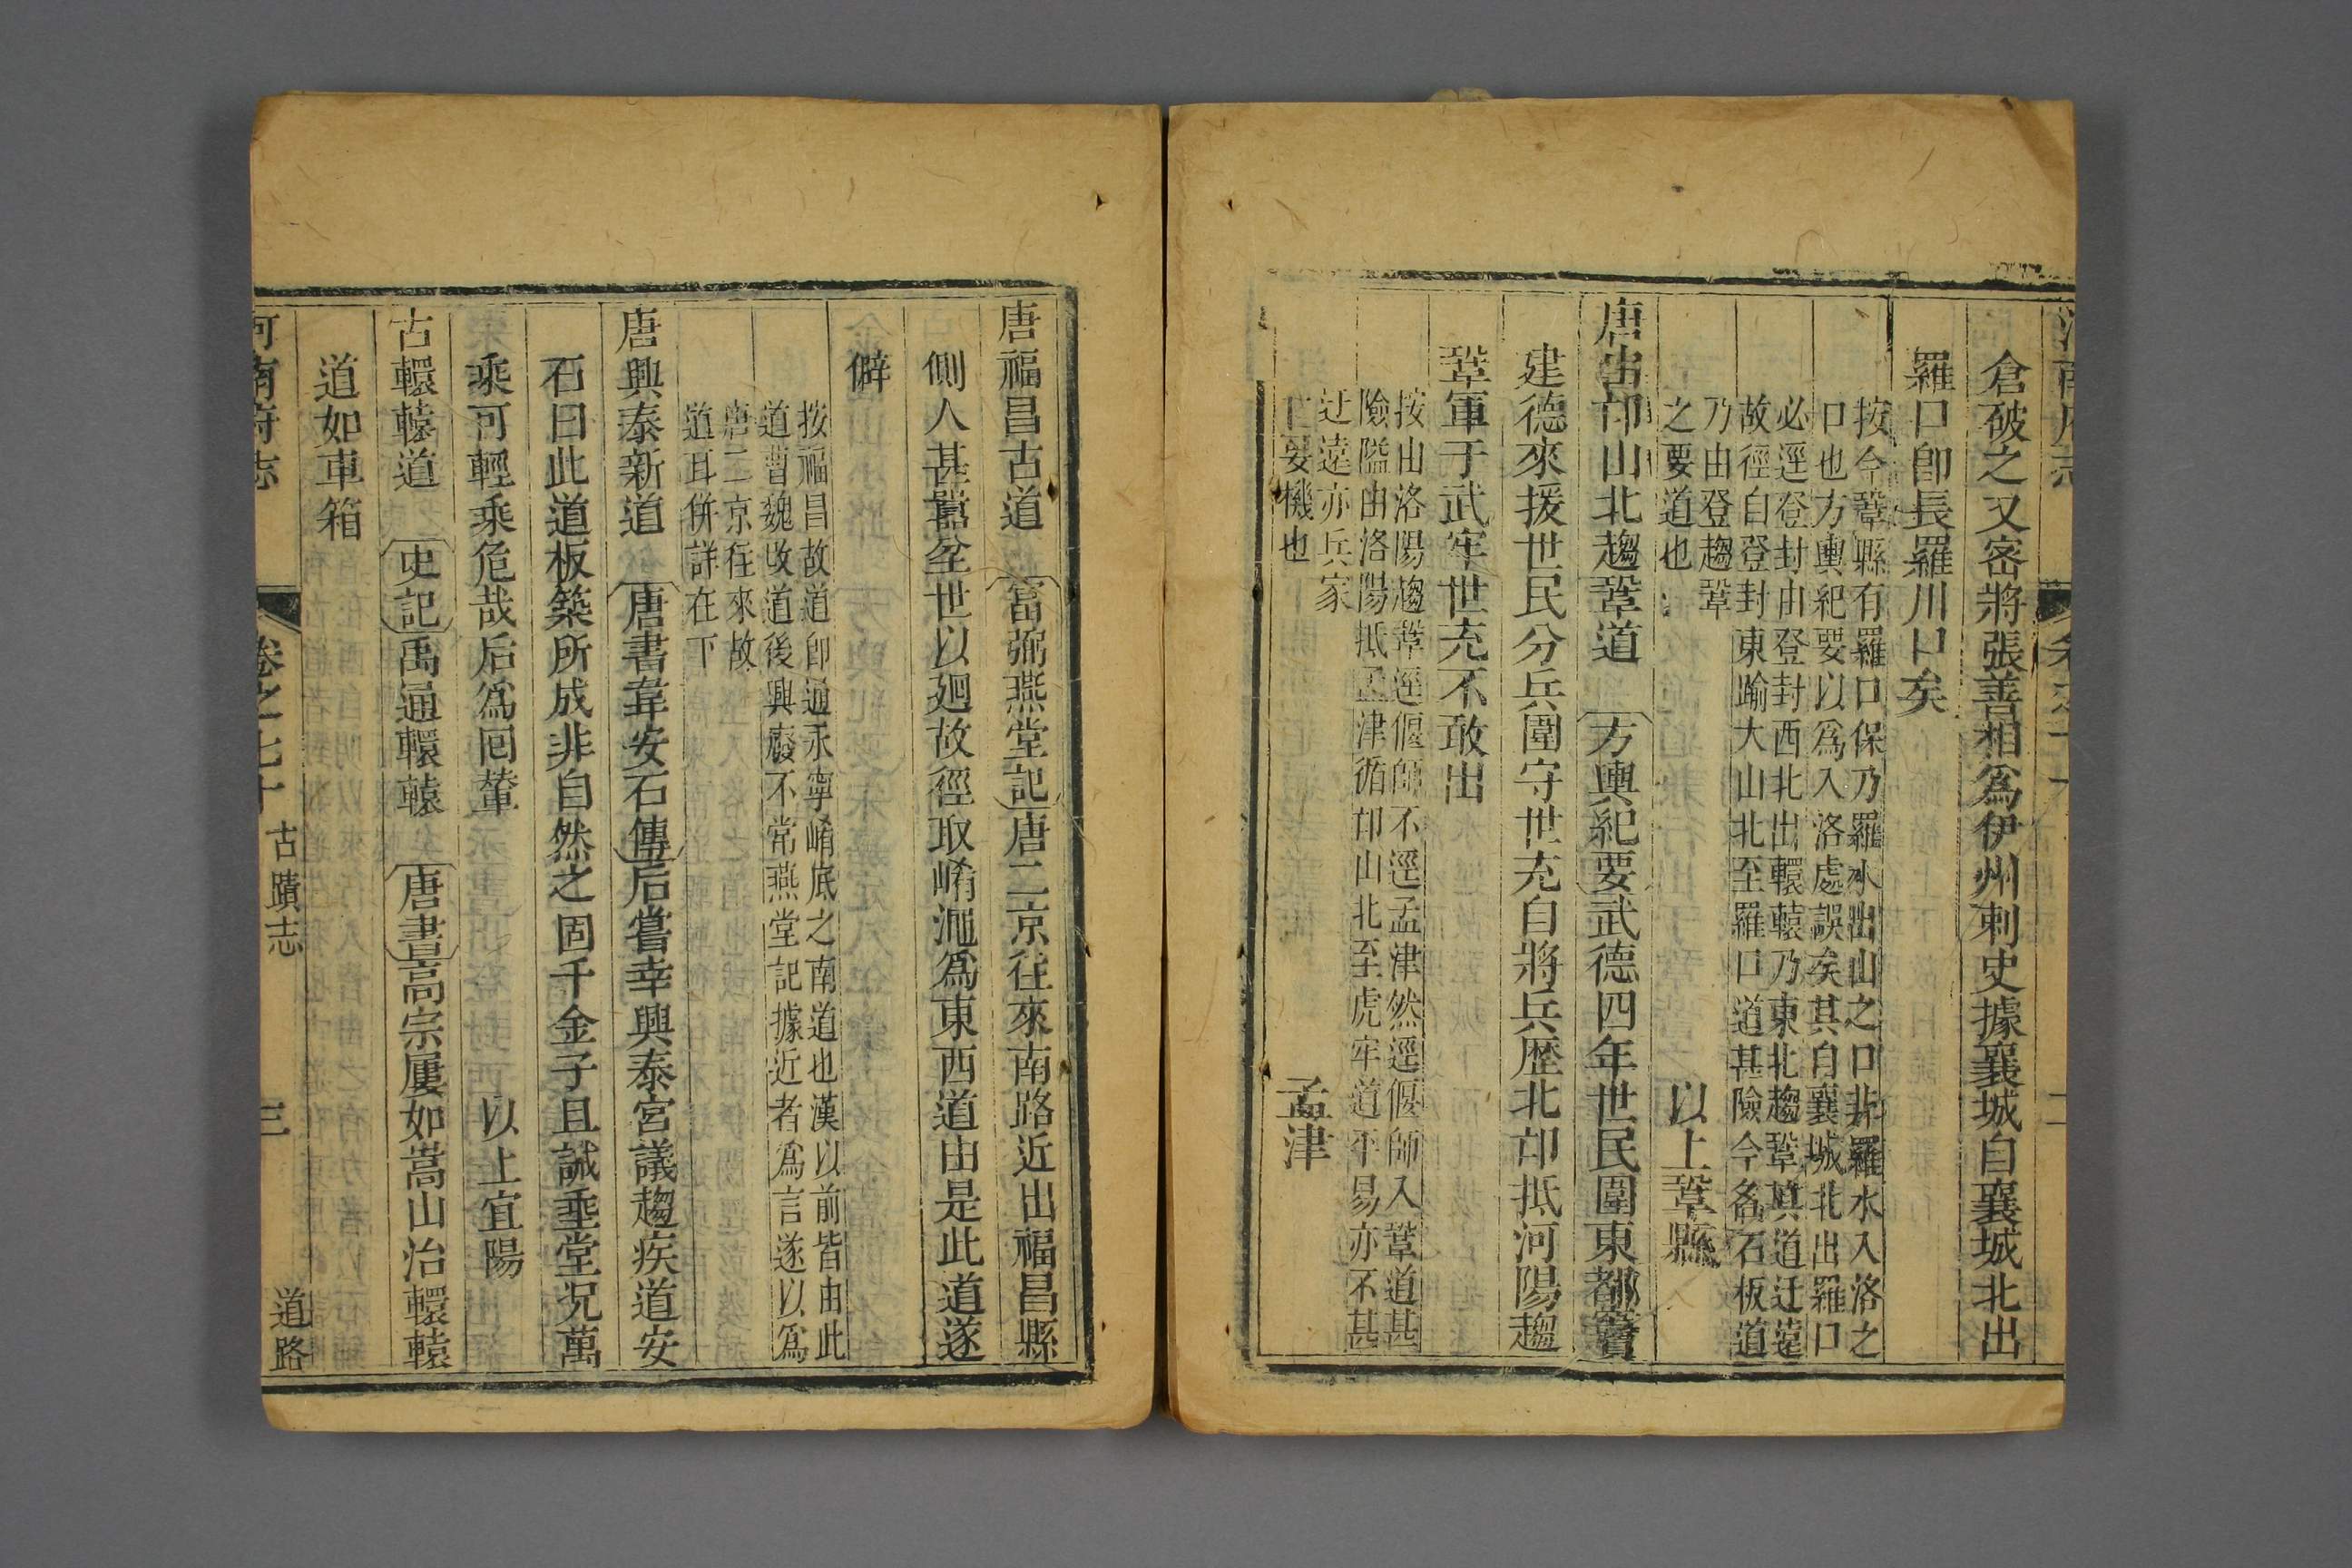 倉破之又密將張善相爲伊州刺史據襄城自襄城北出
羅口卽長羅川口矣
按今鞏縣有羅口保乃羅水出山之口非羅水入洛之
口也方輿紀要以爲入洛處誤矣其自襄城北出羅口
必逕登封由登封西北出轘轅乃東北趨鞏其道迂遠
故徑自登封東踰大山北至羅口道甚險今名石板道
乃由登趨鞏
之要道也
以上鞏縣
唐出邙山北趨鞏道 方輿紀要武德四年世民圍東都竇
建德來援世民分兵圍守世充自將兵歷北邙抵河陽趨
鞏軍于武牢世充不敢出
按由洛陽趨鞏逕偃師不逕孟津然逕偃師入鞏道甚
險隘由洛陽抵孟津循邙山北至虎牢道平易亦不甚
迂遠亦兵家
之要機也
孟津
唐福昌古道 富弼燕堂記唐二京往來南路近出福昌縣
側人甚囂坌世以廻故徑取崤澠爲東西道由是此道遂
僻
按福昌故道卽通永寧崤底之南道也漢以前皆由此
道曹魏收道後興廢不常燕堂記據近者爲言遂以爲
唐二京往來故
道耳併詳在下
唐興泰新道 唐書韋安石傳后嘗幸興泰宮議趨疾道安
石曰此道板築所成非自然之固千金子且誠垂堂況萬
乘可輕乘危哉后爲囘輦 以上宜陽
古轘轅道 史記禹通轘轅 唐書高宗屢如嵩山治轘轅
道如車箱
河南府志 卷之七十 古蹟志 道路 三